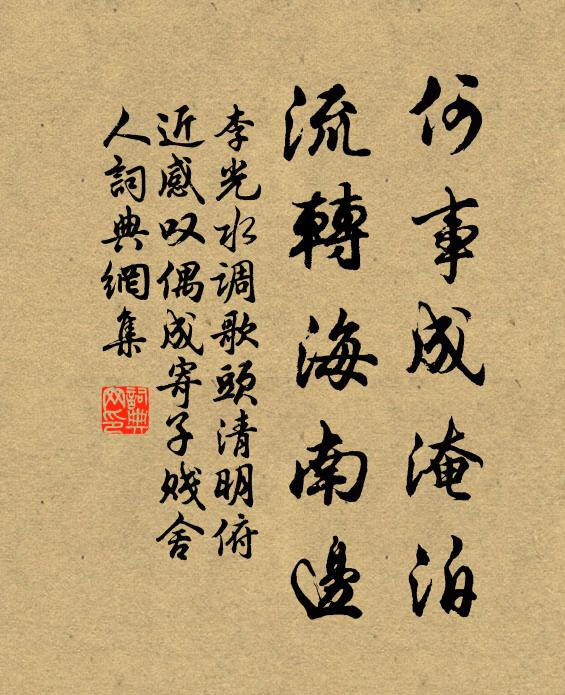 何事成淹泊
流轉海南邊
李光水調歌頭清明俯
近感叹偶成寄子賤舍
人詞典網集
詞典
网印